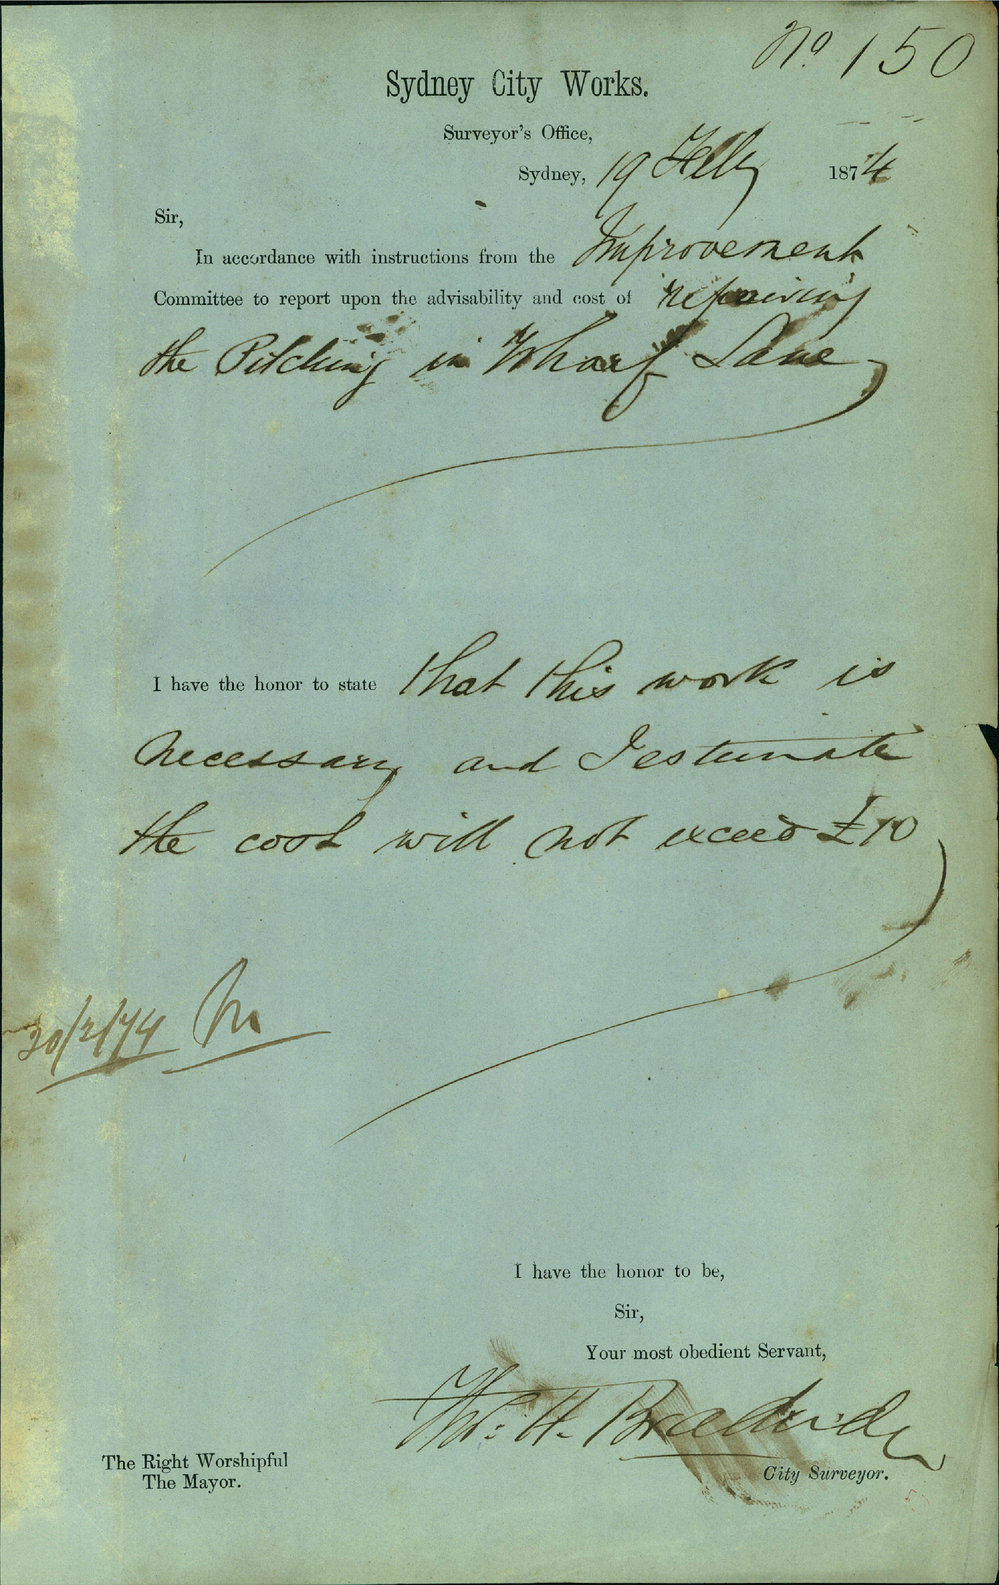 No. 150
Sydney City Works.
Surveyor's Office,
Sydney, 19 Feby 1874
Sir,
In accordance with instructions from the Improvement
Committee to report upon the advisability and cost of repairing
the Pitching in Wharf Lane
I have the honor to state that this work is
necessary and I estimate
the cost will not exceed £10
20/2/74
I have the honor to be,
Sir,
Your most obedient Servant,
The Right Worshipful
The Mayor.
City Surveyor.